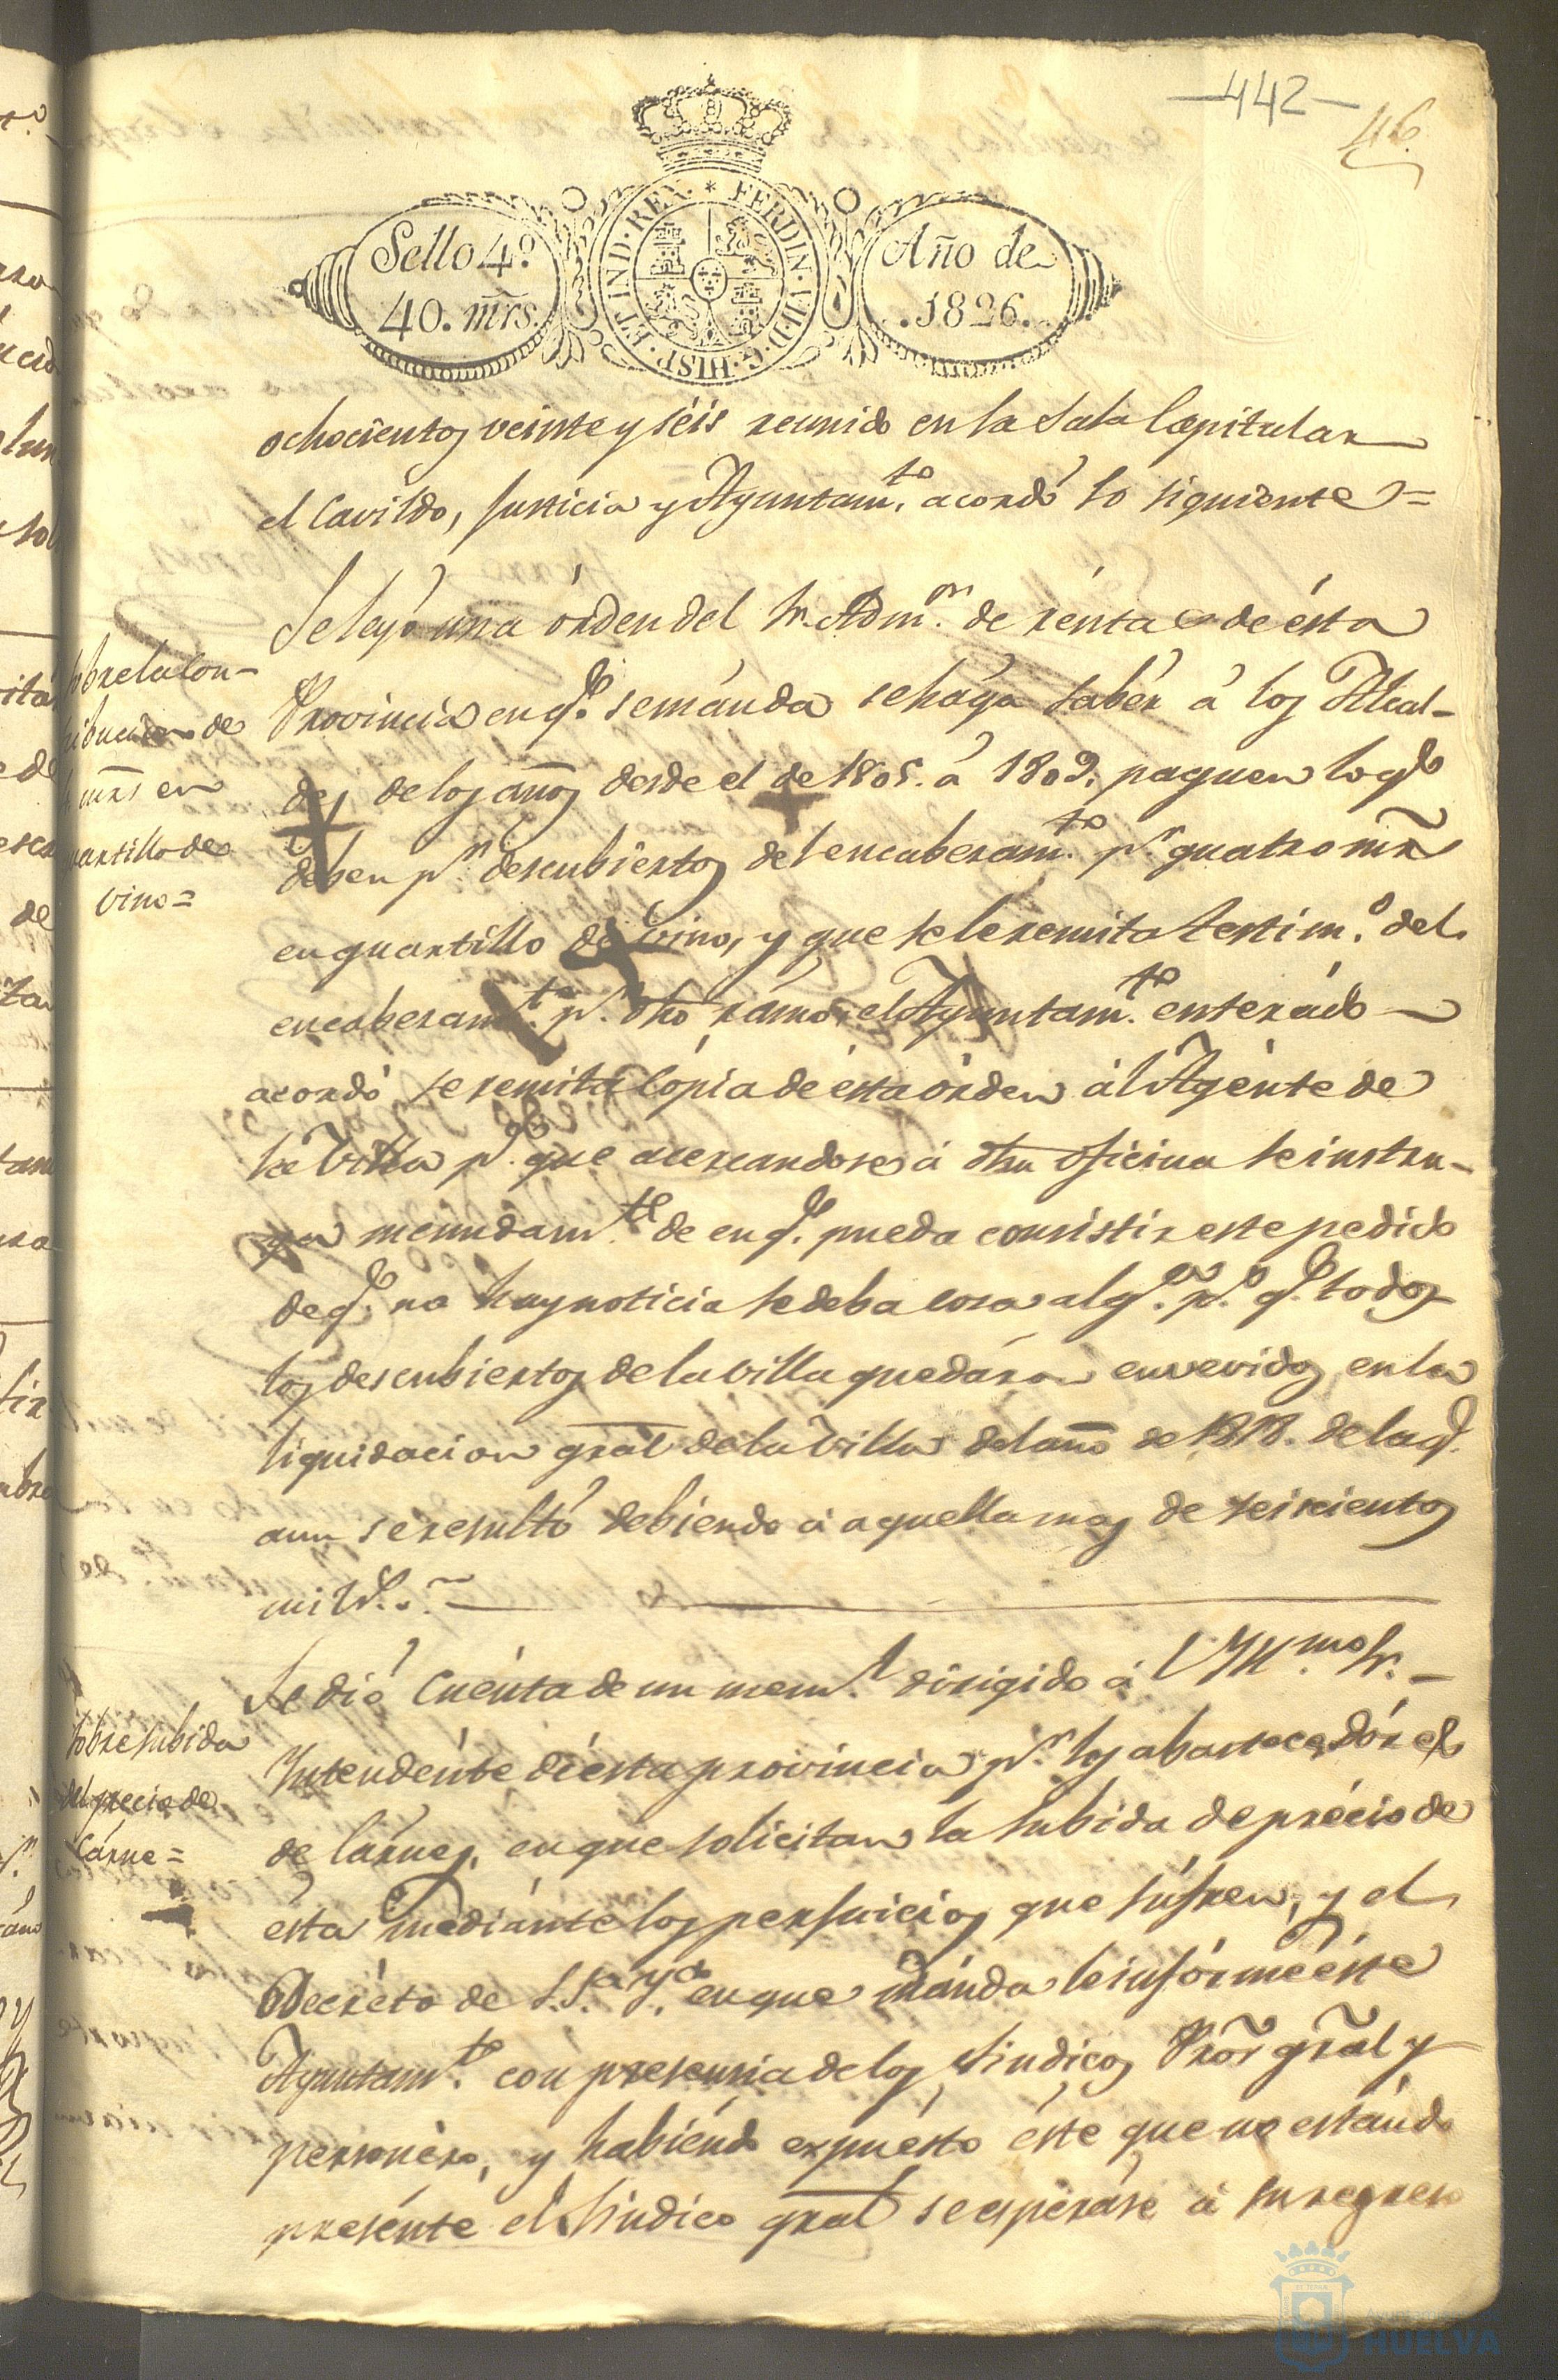 -442-
46.
Sello 4º.
40. mrs.
FERDIN·VII·D·G·HISP·ET IND·REX·
Año de
.1826.
ochocientos veinte y séis reunido en la Sala Capitular
el Cavildo, Justicia y Ayuntam.to acordó lo siguiente=
Se leyó una órden del Sr. Adm.or de rénta de ésta
Provincia en q.e se mánda se hága sabér á los Alcal-
des de los años desde el de 1805. á 1809. paguen lo q.e
deben p.r descubiertos del encabezam.to p.r quatro mrs
en quartillo de vino, y que se le remita testim.o del
encabezam.to p.r dho rámo; el Ayuntam.to enterádo
acordó se remita cópia de ésta órden al Agénte de
la Villa p.a que acercandose á dha oficina se instru-
ya menudam.te de en q.e pueda consistir este pedido
de q.e no hay noticia se deba cosa alg.a p.r q.e todos
los descubiertos de la villa quedáron envevidos en la
liquidacion gral de la Villa del año de 1818. de la q.e
aun se resultó debiendo á aquella mas de seiscientos
mil r.s
Se dió cuénta de un mem.l dirigido á l Yll.mo Sr.
Yntendénte de ésta provincia p.r los abastecedóres
de Cárnes, en que solicitan la subida de précio de
ésta mediánte los perjuicios que súfren, y el
Decréto de S.S.a Y.a en que mánda le infórme éste
Ayuntam.to con presencia de los Sindicos Prór grál y
personéro, y habiéndo expuésto éste que no estándo
presénte el Síndico gral se esperáse á su regreso
Sobre la con-
tribucion de
4 mrs en
quartillo de
vino=
Sobre subida
del precio de
Cárne=
HUELVA